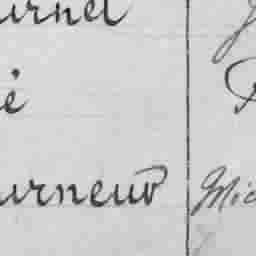 urnel
é
urneur Mic